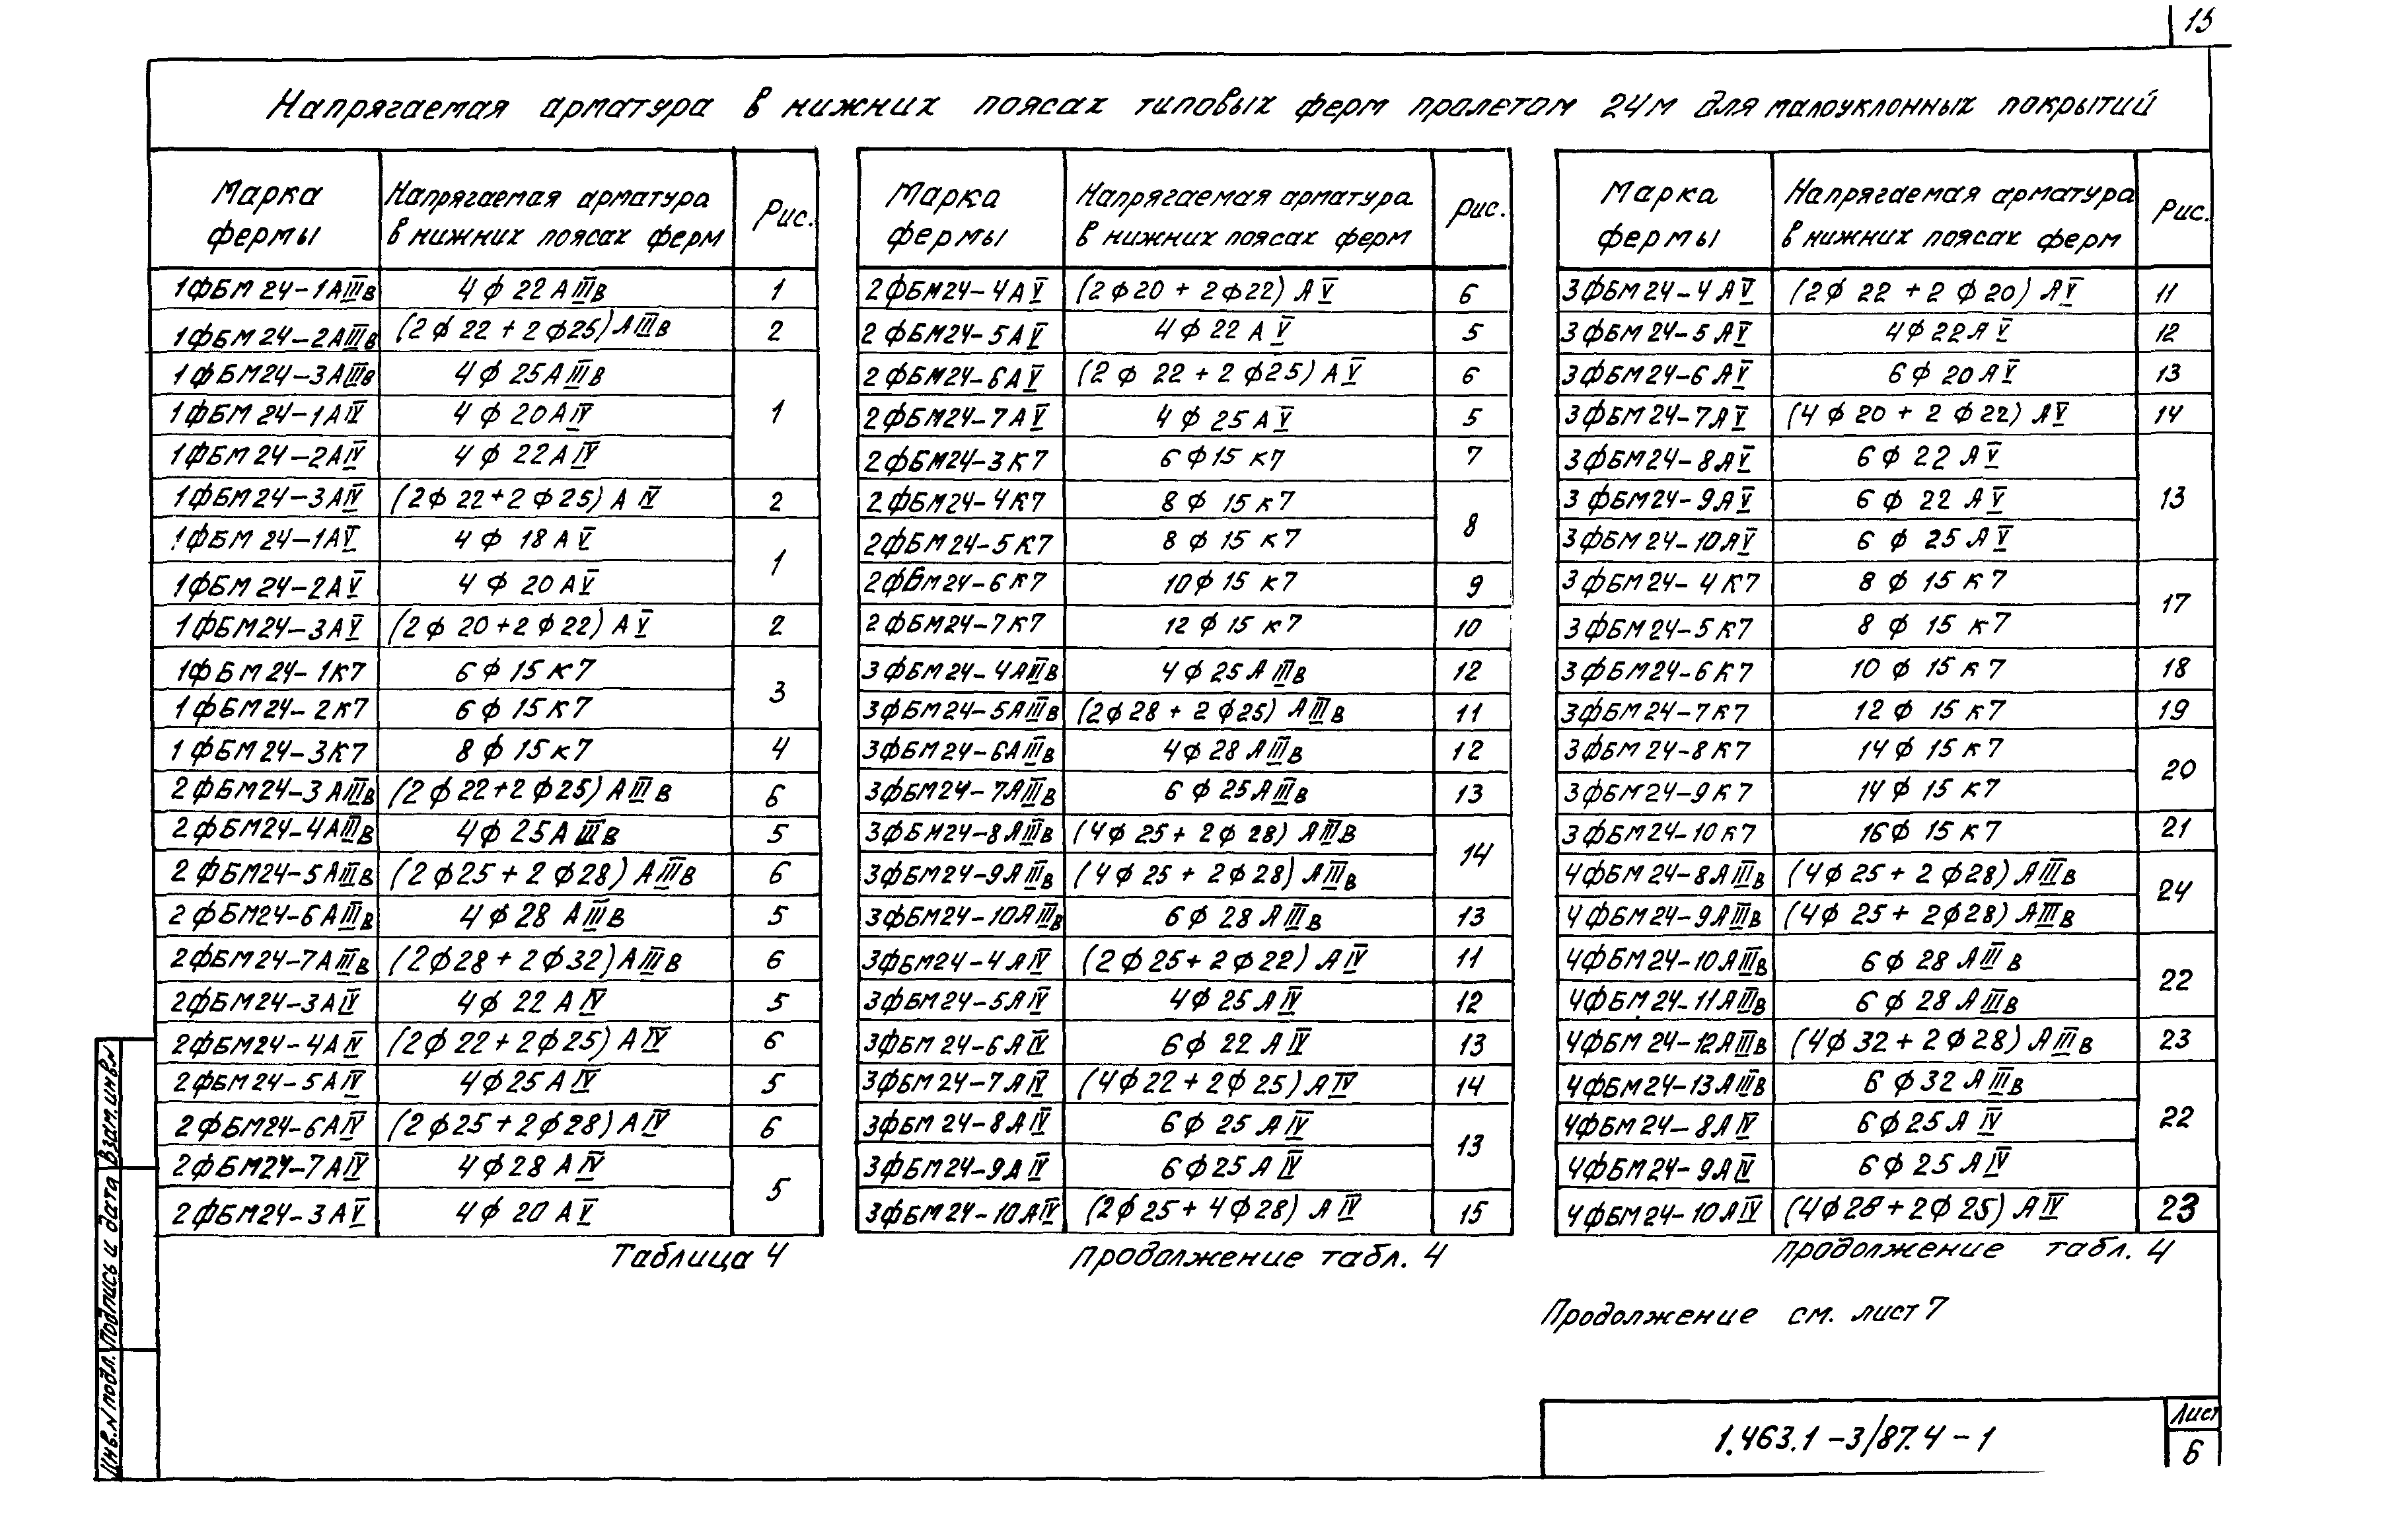 15
Напрягаемая арматура в нижних поясах типовых ферм пролетом 24м для малоуклонных покрытий
Марка фермы | Напрягаемая арматура в нижних поясах ферм | Рис.
1ФБМ24-1АIIIв | 4ф22АIIIв | 1
1ФБМ24-2АIIIв | (2ф22+2ф25)АIIIв | 2
1ФБМ24-3АIIIв | 4ф25АIIIв | 1
1ФБМ24-1АIV | 4ф20АIV
1ФБМ24-2АIV | 4ф22АIV
1ФБМ24-3АIV | (2ф22+2ф25)АIV | 2
1ФБМ24-1АV | 4ф18АV | 1
1ФБМ24-2АV | 4ф20АV
1ФБМ24-3АV | (2ф20+2ф22)АV | 2
1ФБМ24-1К7 | 6ф15К7 | 3
1ФБМ24-2К7 | 6ф15К7
1ФБМ24-3К7 | 8ф15К7 | 4
2ФБМ24-3АIIIв | (2ф22+2ф25)АIIIв | 6
2ФБМ24-4АIIIв | 4ф25АIIIв | 5
2ФБМ24-5АIIIв | (2ф25+2ф28)АIIIв | 6
2ФБМ24-6АIIIв | 4ф28АIIIв | 5
2ФБМ24-7АIIIв | (2ф28+2ф32)АIIIв | 6
2ФБМ24-3АIV | 4ф22АIV | 5
2ФБМ24-4АIV | (2ф22+2ф25)АIV | 6
2ФБМ24-5АIV | 4ф25АIV | 5
2ФБМ24-6АIV | (2ф25+2ф28)АIV | 6
2ФБМ24-7АIV | 4ф28АIV | 5
2ФБМ24-3АV | 4ф20АV
Таблица 4
Марка фермы | Напрягаемая арматура в нижних поясах ферм | Рис.
2ФБМ24-4АV | (2ф20+2ф22)АV | 6
2ФБМ24-5АV | 4ф22АV | 5
2ФБМ24-6АV | (2ф22+2ф25)АV | 6
2ФБМ24-7АV | 4ф25АV | 5
2ФБМ24-3К7 | 6ф15К7 | 7
2ФБМ24-4К7 | 8ф15К7 | 8
2ФБМ24-5К7 | 8ф15К7
2ФБМ24-6К7 | 10ф15К7 | 9
2ФБМ24-7К7 | 12ф15К7 | 10
3ФБМ24-4АIIIв | 4ф25АIIIв | 12
3ФБМ24-5АIIIв | (2ф28+2ф25)АIIIв | 11
3ФБМ24-6АIIIв | 4ф28АIIIв | 12
3ФБМ24-7АIIIв | 6ф25АIIIв | 13
3ФБМ24-8АIIIв | (4ф25+2ф28)АIIIв | 14
3ФБМ24-9АIIIв | (4ф25+2ф28)АIIIв
3ФБМ24-10АIIIв | 6ф28АIIIв | 13
3ФБМ24-4АIV | (2ф25+2ф22)АIV | 11
3ФБМ24-5АIV | 4ф25АIV | 12
3ФБМ24-6АIV | 6ф22АIV | 13
3ФБМ24-7АIV | (4ф22+2ф25)АIV | 14
3ФБМ24-8АIV | 6ф25АIV | 13
3ФБМ24-9АIV | 6ф25АIV
3ФБМ24-10АIV | (2ф25+4ф28)АIV | 15
Продолжение табл. 4
Марка фермы | Напрягаемая арматура в нижних поясах ферм | Рис.
3ФБМ24-4АV | (2ф22+2ф20)АV | 11
3ФБМ24-5АV | 4ф22АV | 12
3ФБМ24-6АV | 6ф20АV | 13
3ФБМ24-7АV | (4ф20+2ф22)АV | 14
3ФБМ24-8АV | 6ф22АV | 13
3ФБМ24-9АV | 6ф22АV
3ФБМ24-10АV | 6ф25АV
3ФБМ24-4К7 | 8ф15К7 | 17
3ФБМ24-5К7 | 8ф15К7
3ФБМ24-6К7 | 10ф15К7 | 18
3ФБМ24-7К7 | 12ф15К7 | 19
3ФБМ24-8К7 | 14ф15К7 | 20
3ФБМ24-9К7 | 14ф15К7
3ФБМ24-10К7 | 16ф15К7 | 21
4ФБМ24-8АIIIв | (4ф25+2ф28)АIIIв | 24
4ФБМ24-9АIIIв | (4ф25+2ф28)АIIIв
4ФБМ24-10АIIIв | 6ф28АIIIв | 22
4ФБМ24-11АIIIв | 6ф28АIIIв
4ФБМ24-12АIIIв | (4ф32+2ф28)АIIIв | 23
4ФБМ24-13АIIIв | 6ф32АIIIв | 22
4ФБМ24-8АIV | 6ф25АIV
4ФБМ24-9АIV | 6ф25АIV
4ФБМ24-10АIV | (4ф28+2ф25)АIV | 23
Продолжение табл. 4
Продолжение см. лист 7
1.463.1-3/87.4-1
Лист
6
Взам.инв.N
Подпись и дата
Инв.N подл.